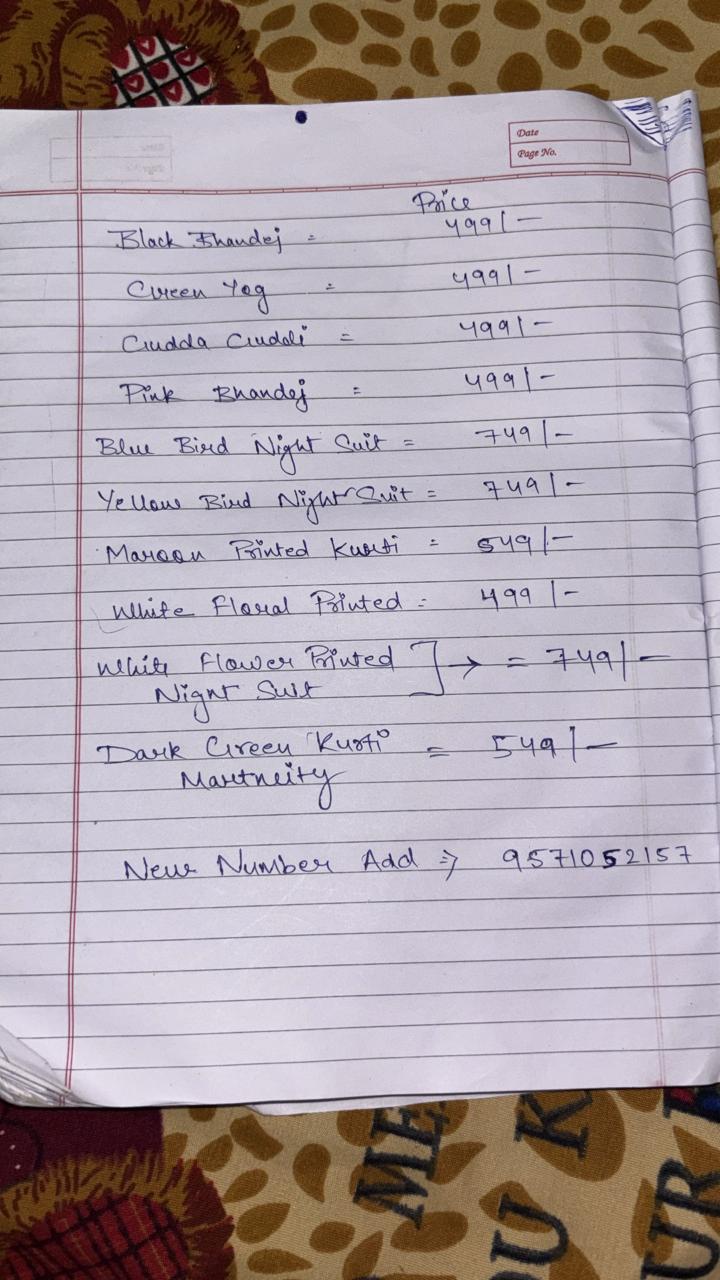 Date
Page No.
Price
Black Bhandej = 499/-
Green Yog = 499/-
Gudda Guddi = 499/-
Pink Bhandej = 499/-
Blue Bird Night Suit = 749/-
Yellow Bird Night Suit = 749/-
Maroon Printed Kurti = 549/-
White Floral Printed = 499/-
White Flower Printed ] → = 749/-
Night Suit
Dark Green Kurti = 549/-
Martneity
New Number Add ⇒ 9571052157
ME
OU K
UR